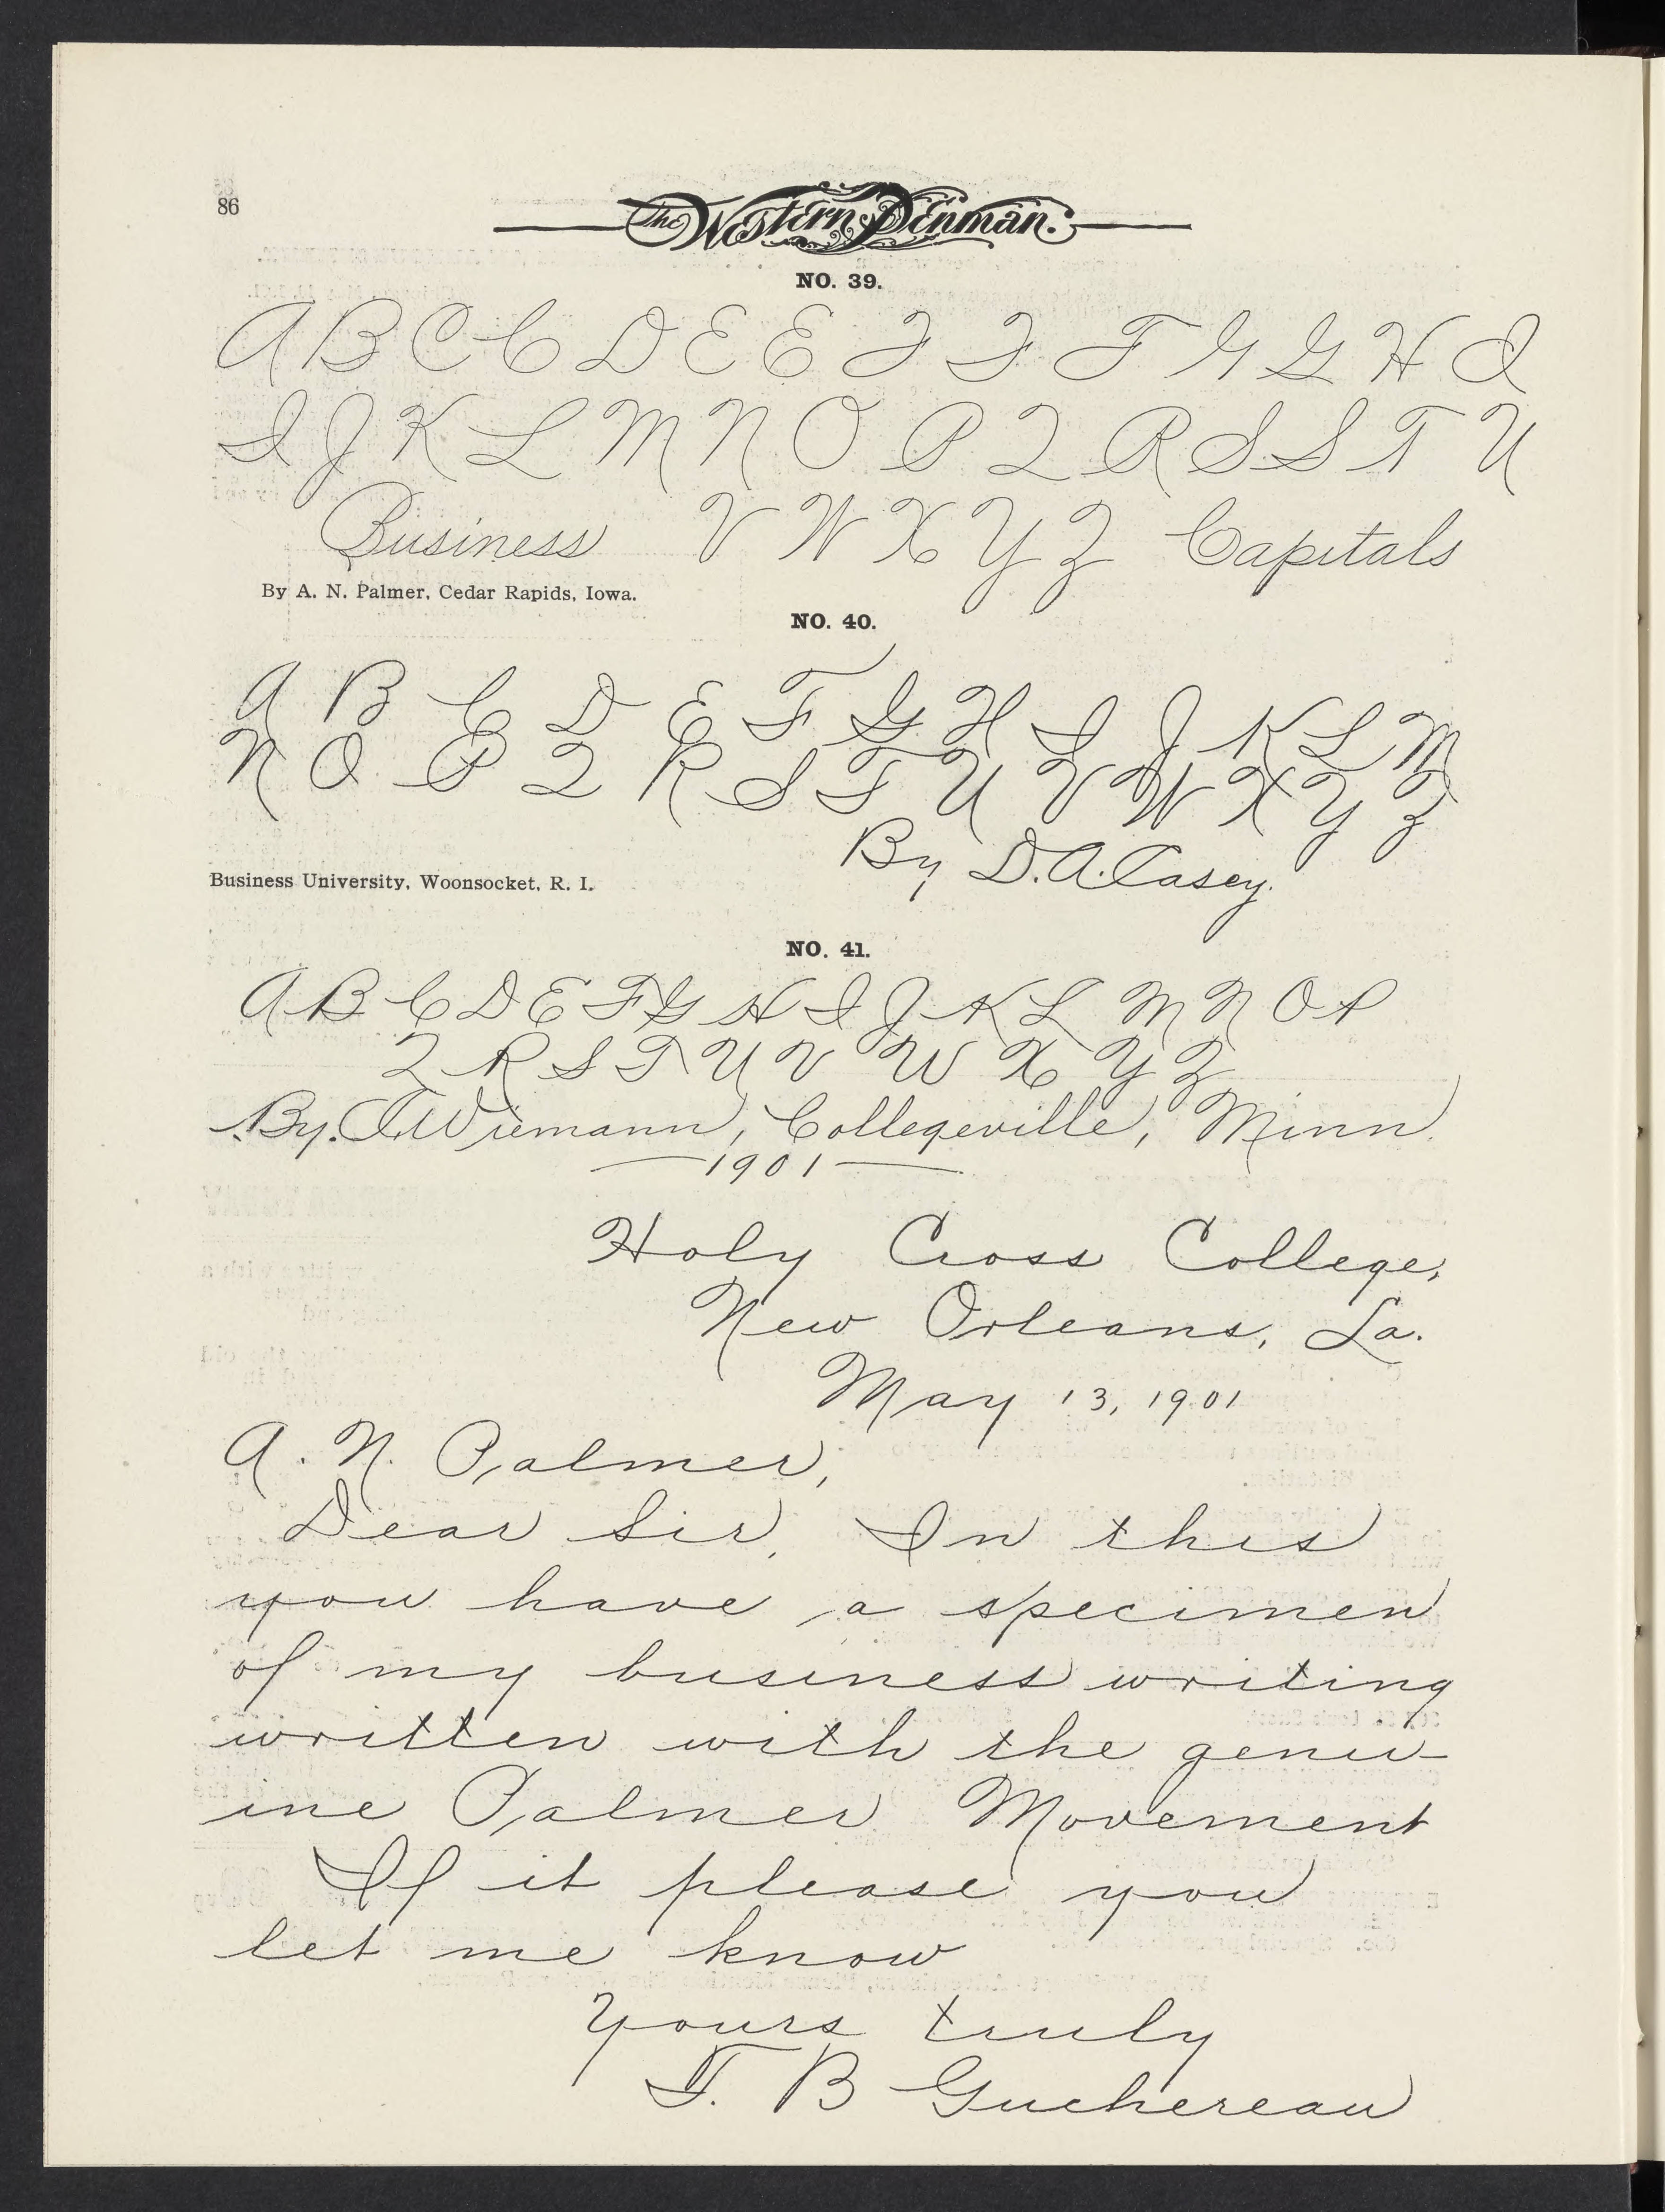 86
The Western Penman.
NO. 39.
A B C C D E E F F F G G H I
I J K L M N O P Q R S S T U
Business V W X Y Z Capitals
By A. N. Palmer, Cedar Rapids, Iowa.
NO. 40.
A B C D E F G H I J K L M
N O P Q R S T U V W X Y Z
By D. A. Casey.
Business University, Woonsocket, R. I.
NO. 41.
A B C D E F G H I J K L M N O P
Q R S T U V W X Y Z
By. J. Wiemann, Collegeville, Minn.
1901
Holy Cross College,
New Orleans, La.
May 13, 1901
A. N. Palmer,
Dear Sir, In this
you have a specimen
of my business writing
written with the genu-
ine Palmer Movement
If it please you
let me know
Yours truly
F. B Guchereau